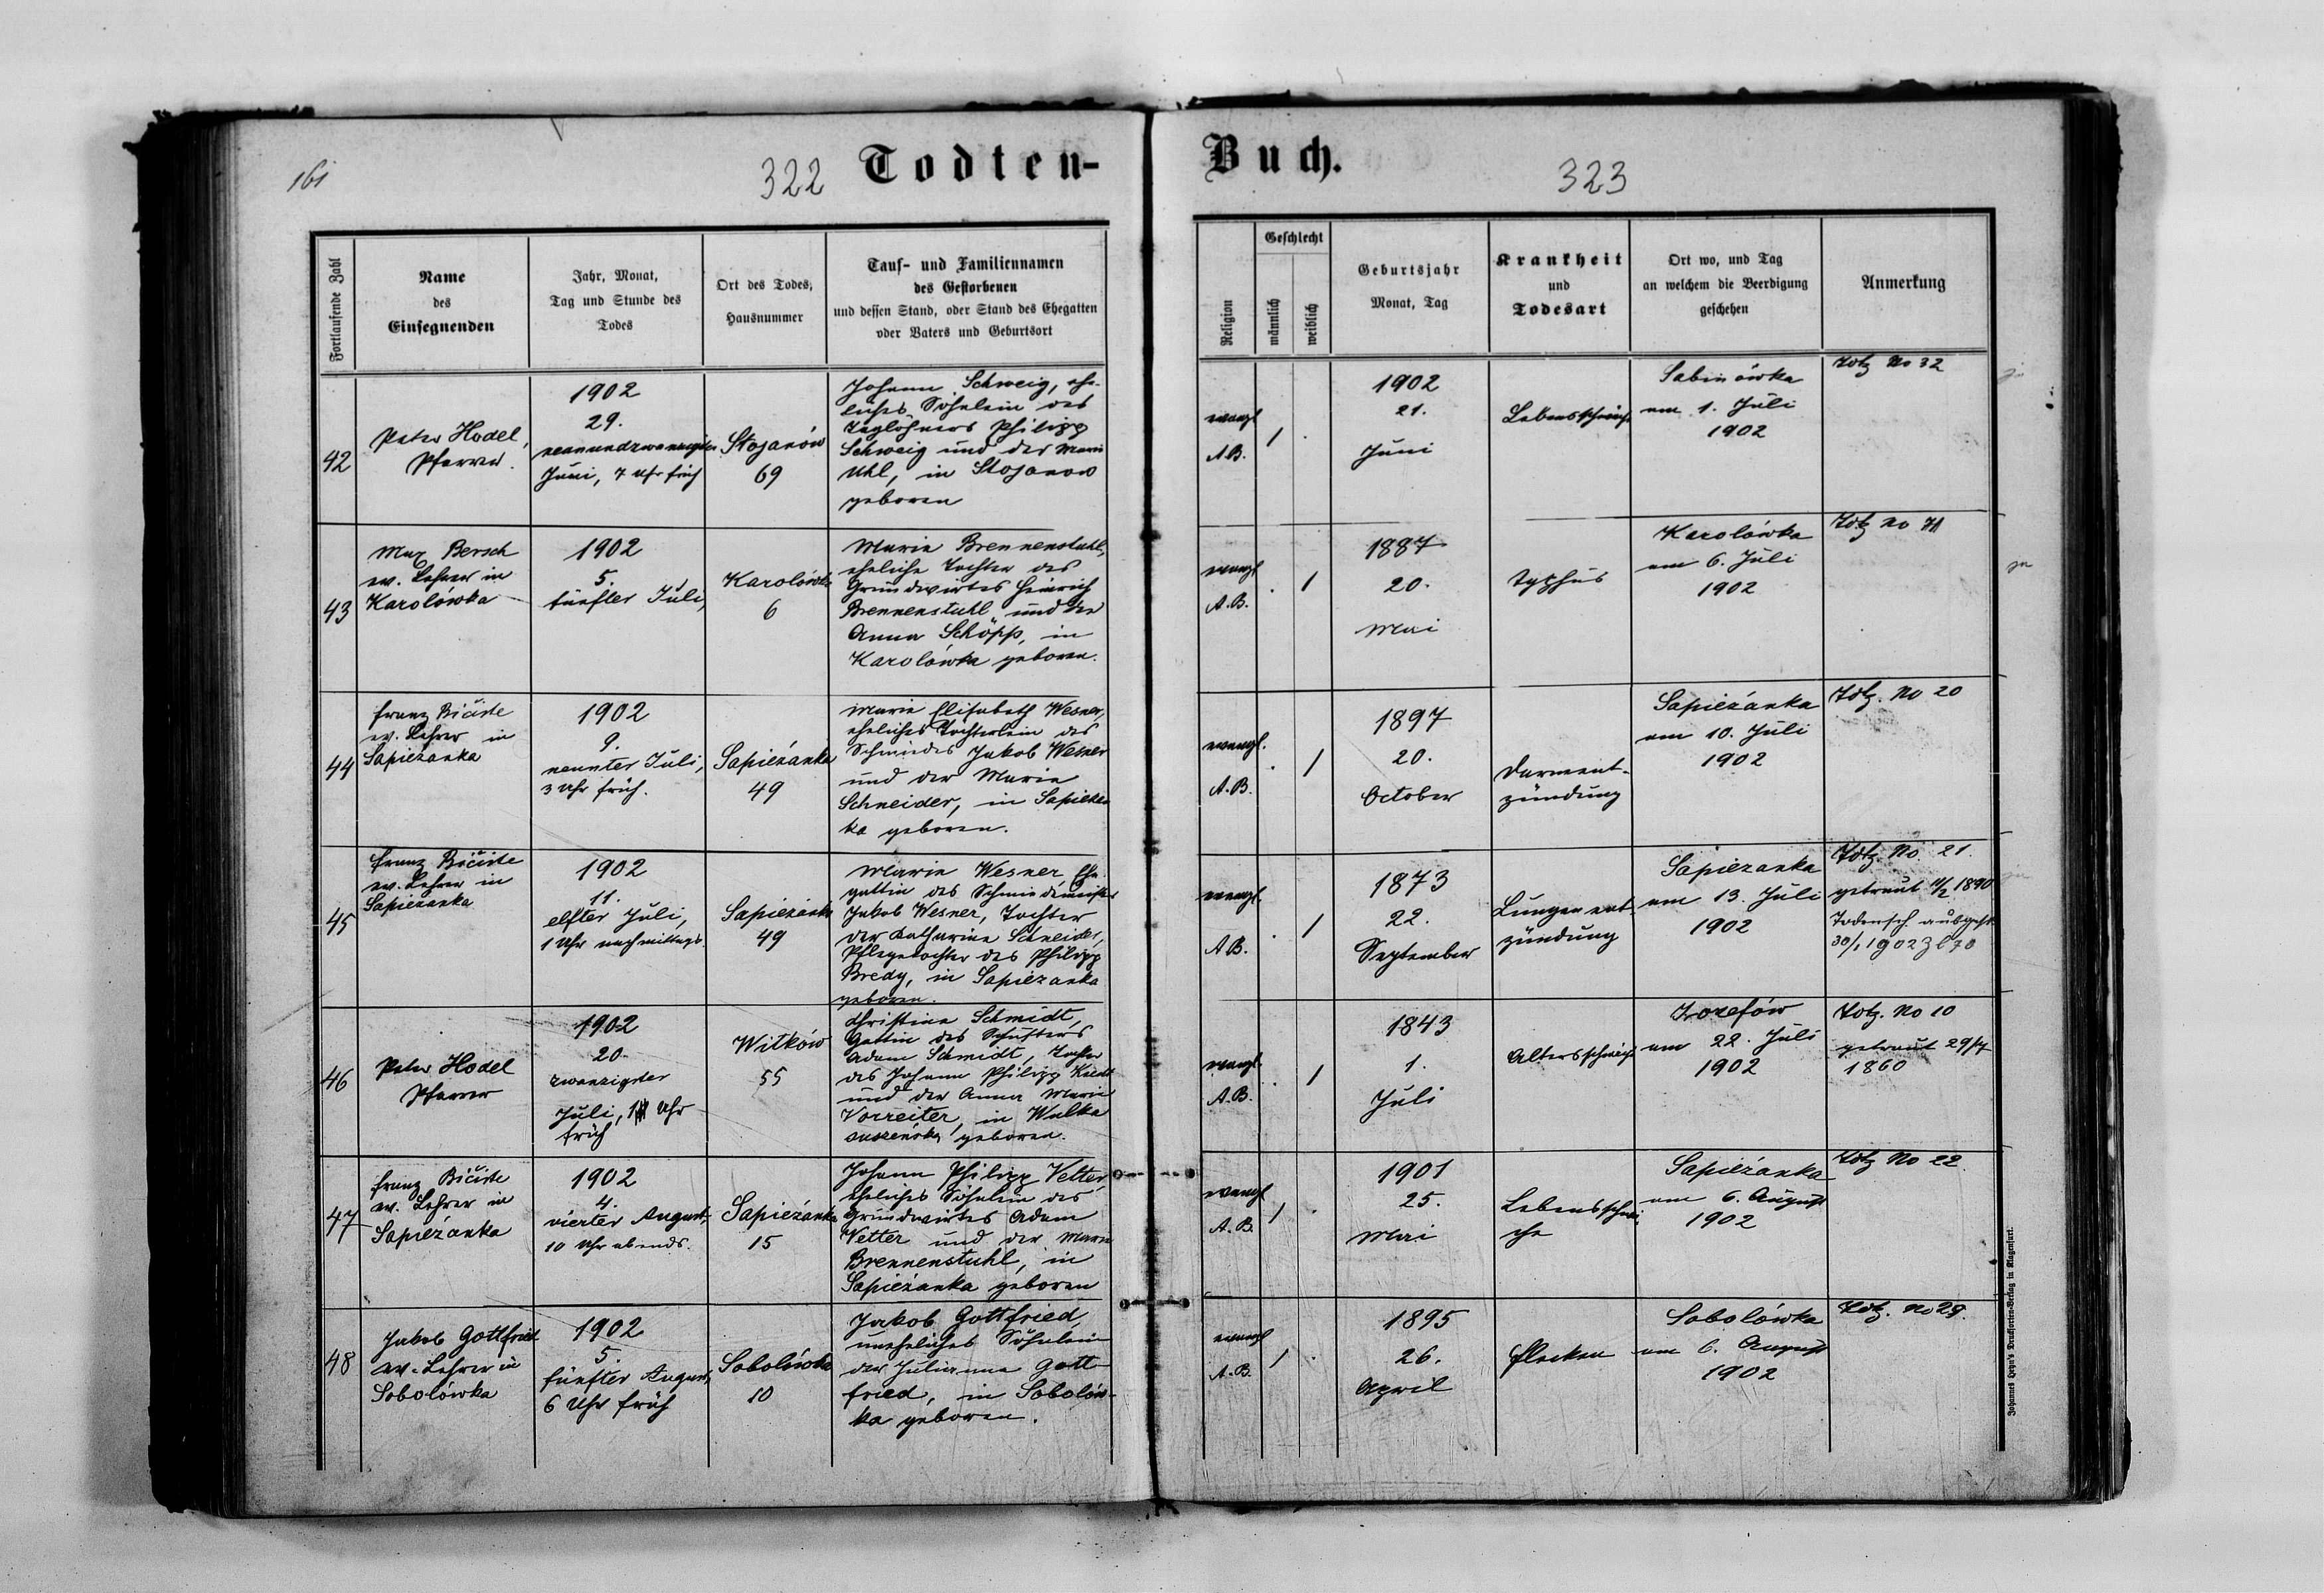 161
322
Todten-
Fortlaufende Zahl
Name
des
Einsegnenden
Jahr, Monat,
Tag und Stunde des
Todes
Ort des Todes,
Hausnummer
Tauf- und Familiennamen
des Gestorbenen
und dessen Stand, oder Stand des Ehegatten
oder Vaters und Geburtsort
42
Peter Hodel,
Pfarrer.
1902
29.
neunundzwanzigster
Juni, 7 Uhr früh
Stojanów
69
Johann Schweig, ehe-
liches Söhnlein des
Taglöhners Philipp
Schweig und der Marie
Uhl, in Stojanow
geboren
43
Max Bersch
ev. Lehrer in
Karolówka
1902
5.
fünfter Juli,
Karolówka
6
Marie Brennenstuhl,
eheliche Tochter des
Grundwirtes Heinrich
Brennenstuhl und der
Anna Schöpp, in
Karolówka geboren.
44
Franz
ev. Lehrer in
Sapieżanka
1902
9.
neunter Juli,
3 Uhr früh.
Sapieżanka
49
Marie Elisabeth Wesner,
eheliches Töchterlein des
Schmiedes Jakob Wesner
und der Marie
Schneider, in Sapieżan
ka geboren.
45
Franz
ev. Lehrer in
Sapiezanka
1902
11.
elfter Juli,
1 Uhr nachmittags.
Sapieżanka
49
Marie Wesner Ehe-
gattin des Schmiedmeisters
Jakob Wesner, Tochter
der Katharine Schneider,
Pflegetochter des Philipp
Bredy, in Sapiezanka
geboren.
46
Peter Hodel
Pfarrer
1902
20.
zwanzigster
Juli, Uhr
früh
Witków
55
Christine Schmidt,
Gattin des Schusters
Adam Schmidt, Tochter
des Johann Philipp
und der Anna Marie
Vorreiter, in Wulka
suszeńska geboren.
47
Franz
ev. Lehrer in
Sapieżanka
1902
4.
vierter August,
10 Uhr abends.
Sapieżanka
15
Johann Philipp Vetter,
eheliches Söhnlein des
Grundwirtes Adam
Vetter und der Marie
Brennenstuhl, in
Sapieżanka geboren
48
Jakob Gottfried
ev. Lehrer in
Sobolówka
1902
5.
fünfter August,
6 Uhr früh
Sobolówka
10
Jakob Gottfried,
uneheliches Söhnlein
der Julianna Gott-
fried, in Sobolów-
ka geboren.
Buch.
323
Religion
Geschlecht
männlich
weiblich
Geburtsjahr
Monat, Tag
Krankheit
und
Todesart
Ort wo, und Tag
an welchem die Beerdigung
geschehen
Anmerkung
evangl
A.B.
1
.
1902
21.
Juni
Lebensschwäche
Sabinówka
am 1. Juli
1902
Totz No 32
evangl
A.B.
.
1
1887
20.
Mai
Typhus
Karolówka
am 6. Juli
1902
Totz No
evangl.
A.B.
.
1
1897
20.
October
Darment-
zündung
Sapieżanka
am 10. Juli
1902
Totz. No 20
evangl.
A.B.
.
1
1873
22.
September
Lungenent-
zündung
Sapiezanka
am 13. Juli
1902
Totz. No. 21.
getraut 11/2 1890
Todensch. ausgest.
evangl.
A.B.
.
1
1843
1.
Juli
Altersschwäche
Jozefów
am 22. Juli
1902
Totz. No 10
getraut 29/7
1860
evangl
A.B.
1
.
1901
25.
Mai
Lebensschwä
che
Sapieżanka
am 6. August
1902
Totz No 22.
evangl
A.B.
1
.
1895
26.
April
Flecken
Sobolówka
am 6. August
1902
Totz. No 29.
Johannes Heyn's Drucksorten-Verlag in Klagenfurt.